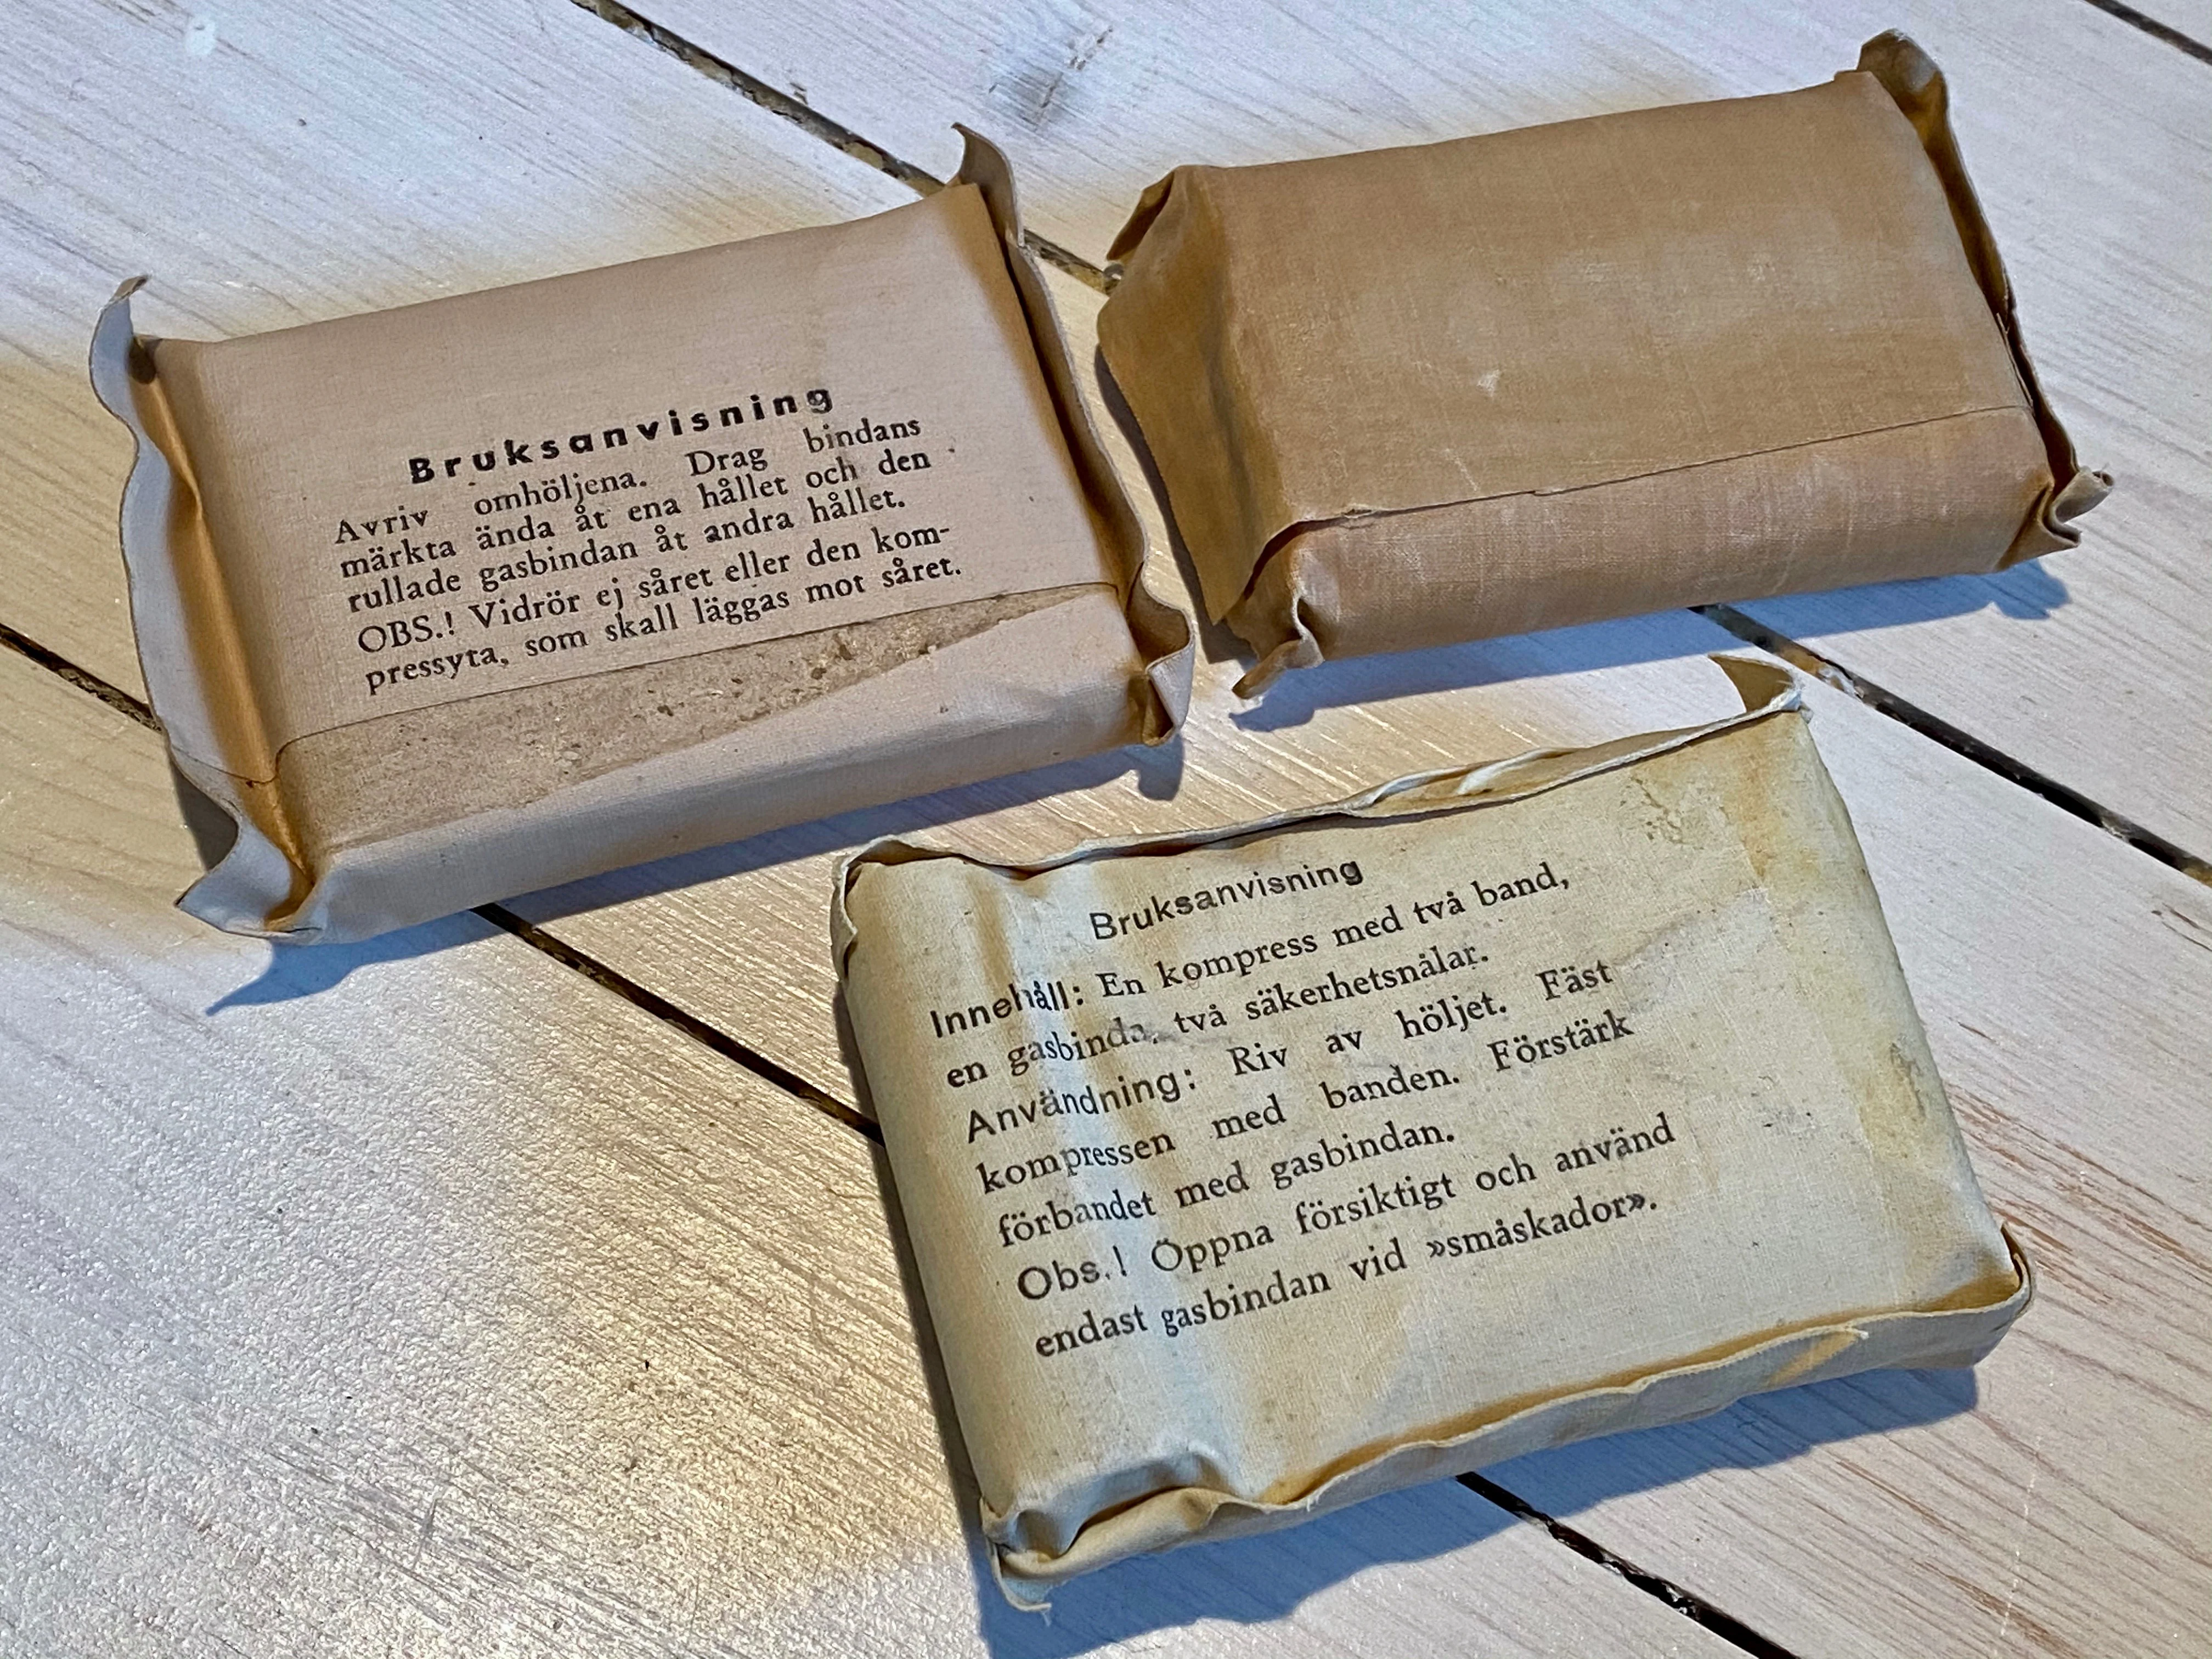 Bruksanvisning
Avriv omhöljena. Drag bindans
märkta ända åt ena hållet och den
rullade gasbindan åt andra hållet.
OBS.! Vidrör ej såret eller den kom-
pressyta, som skall läggas mot såret.
Bruksanvisning
Innehåll: En kompress med två band,
en gasbinda, två säkerhetsnålar.
Användning: Riv av höljet. Fäst
kompressen med banden. Förstärk
förbandet med gasbindan.
Obs.! Öppna försiktigt och använd
endast gasbindan vid »småskador».